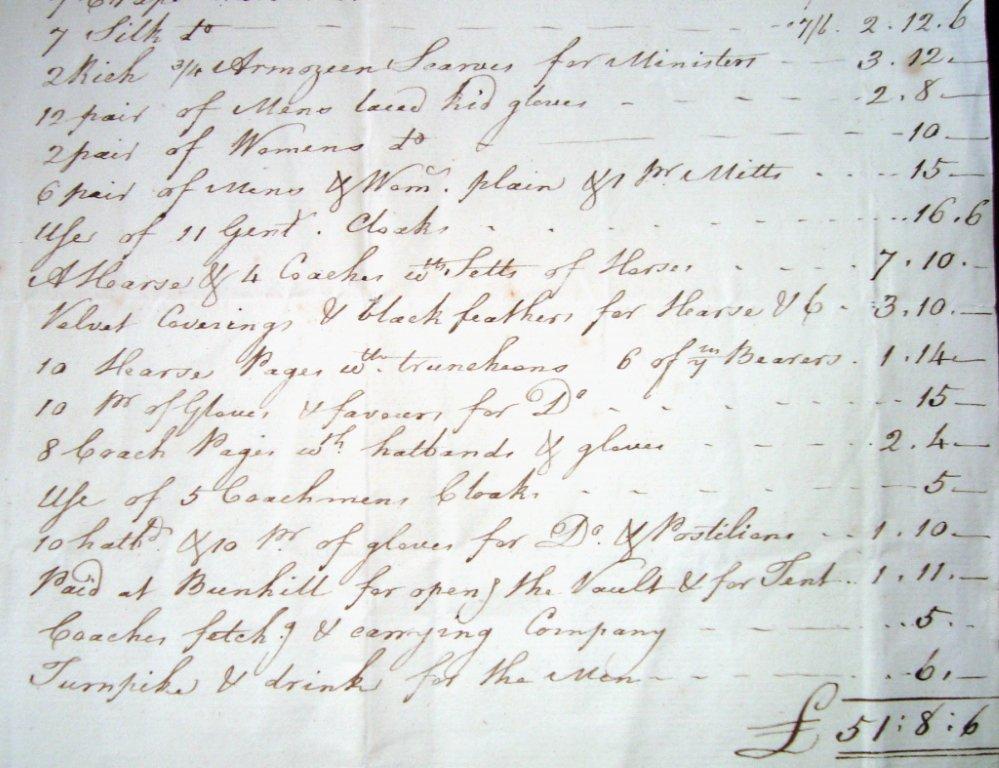 7 Silk do 7/6. 2.12.6
2 Rich 3/4 Armozeen Scarves for Ministers 3.12.—
12 pair of Mens laced kid gloves 2.8—
2 pair of Womens do 10—
6 pair of Mens & Wom.s plain & 1 Pr Mitts 15—
Use of 11 Gent.s Cloaks 16.6
A Hearse & 4 Coaches wth Setts of Horses 7.10.—
Velvet Coverings & black feathers for Hearse & 6 3.10.—
10 Hearse Pages wth truncheons 6 of ym Bearers 1.14—
10 Pr of Gloves & favours for Do 15—
8 Coach Pages wth hatbands & gloves 2.4—
Use of 5 Coachmens Cloaks 5—
10 hatbds & 10 Pr of gloves for Do. & Postilians 1.10—
Paid at Bunhill for openg the Vault & for Tent 1.11.—
Coaches fetchg & carrying Company 5.
Turnpike & drink for the Men 6.—
£51:8:6